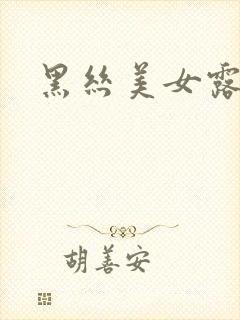 黑丝美女露
胡善安